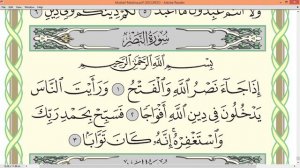 Mushaf Madina.pdf
وَلَآ أَنتُمْ عَٰبِدُونَ مَآ أَعْبُدُ ٥ لَكُمْ دِينُكُمْ وَلِىَ دِينِ ٦
سُورَةُ النَّصْرِ
بِسْمِ ٱللَّهِ ٱلرَّحْمَٰنِ ٱلرَّحِيمِ
إِذَا جَآءَ نَصْرُ ٱللَّهِ وَٱلْفَتْحُ ١ وَرَأَيْتَ ٱلنَّاسَ
يَدْخُلُونَ فِى دِينِ ٱللَّهِ أَفْوَاجًا ٢ فَسَبِّحْ بِحَمْدِ رَبِّكَ
وَٱسْتَغْفِرْهُ إِنَّهُۥ كَانَ تَوَّابًۢا ٣